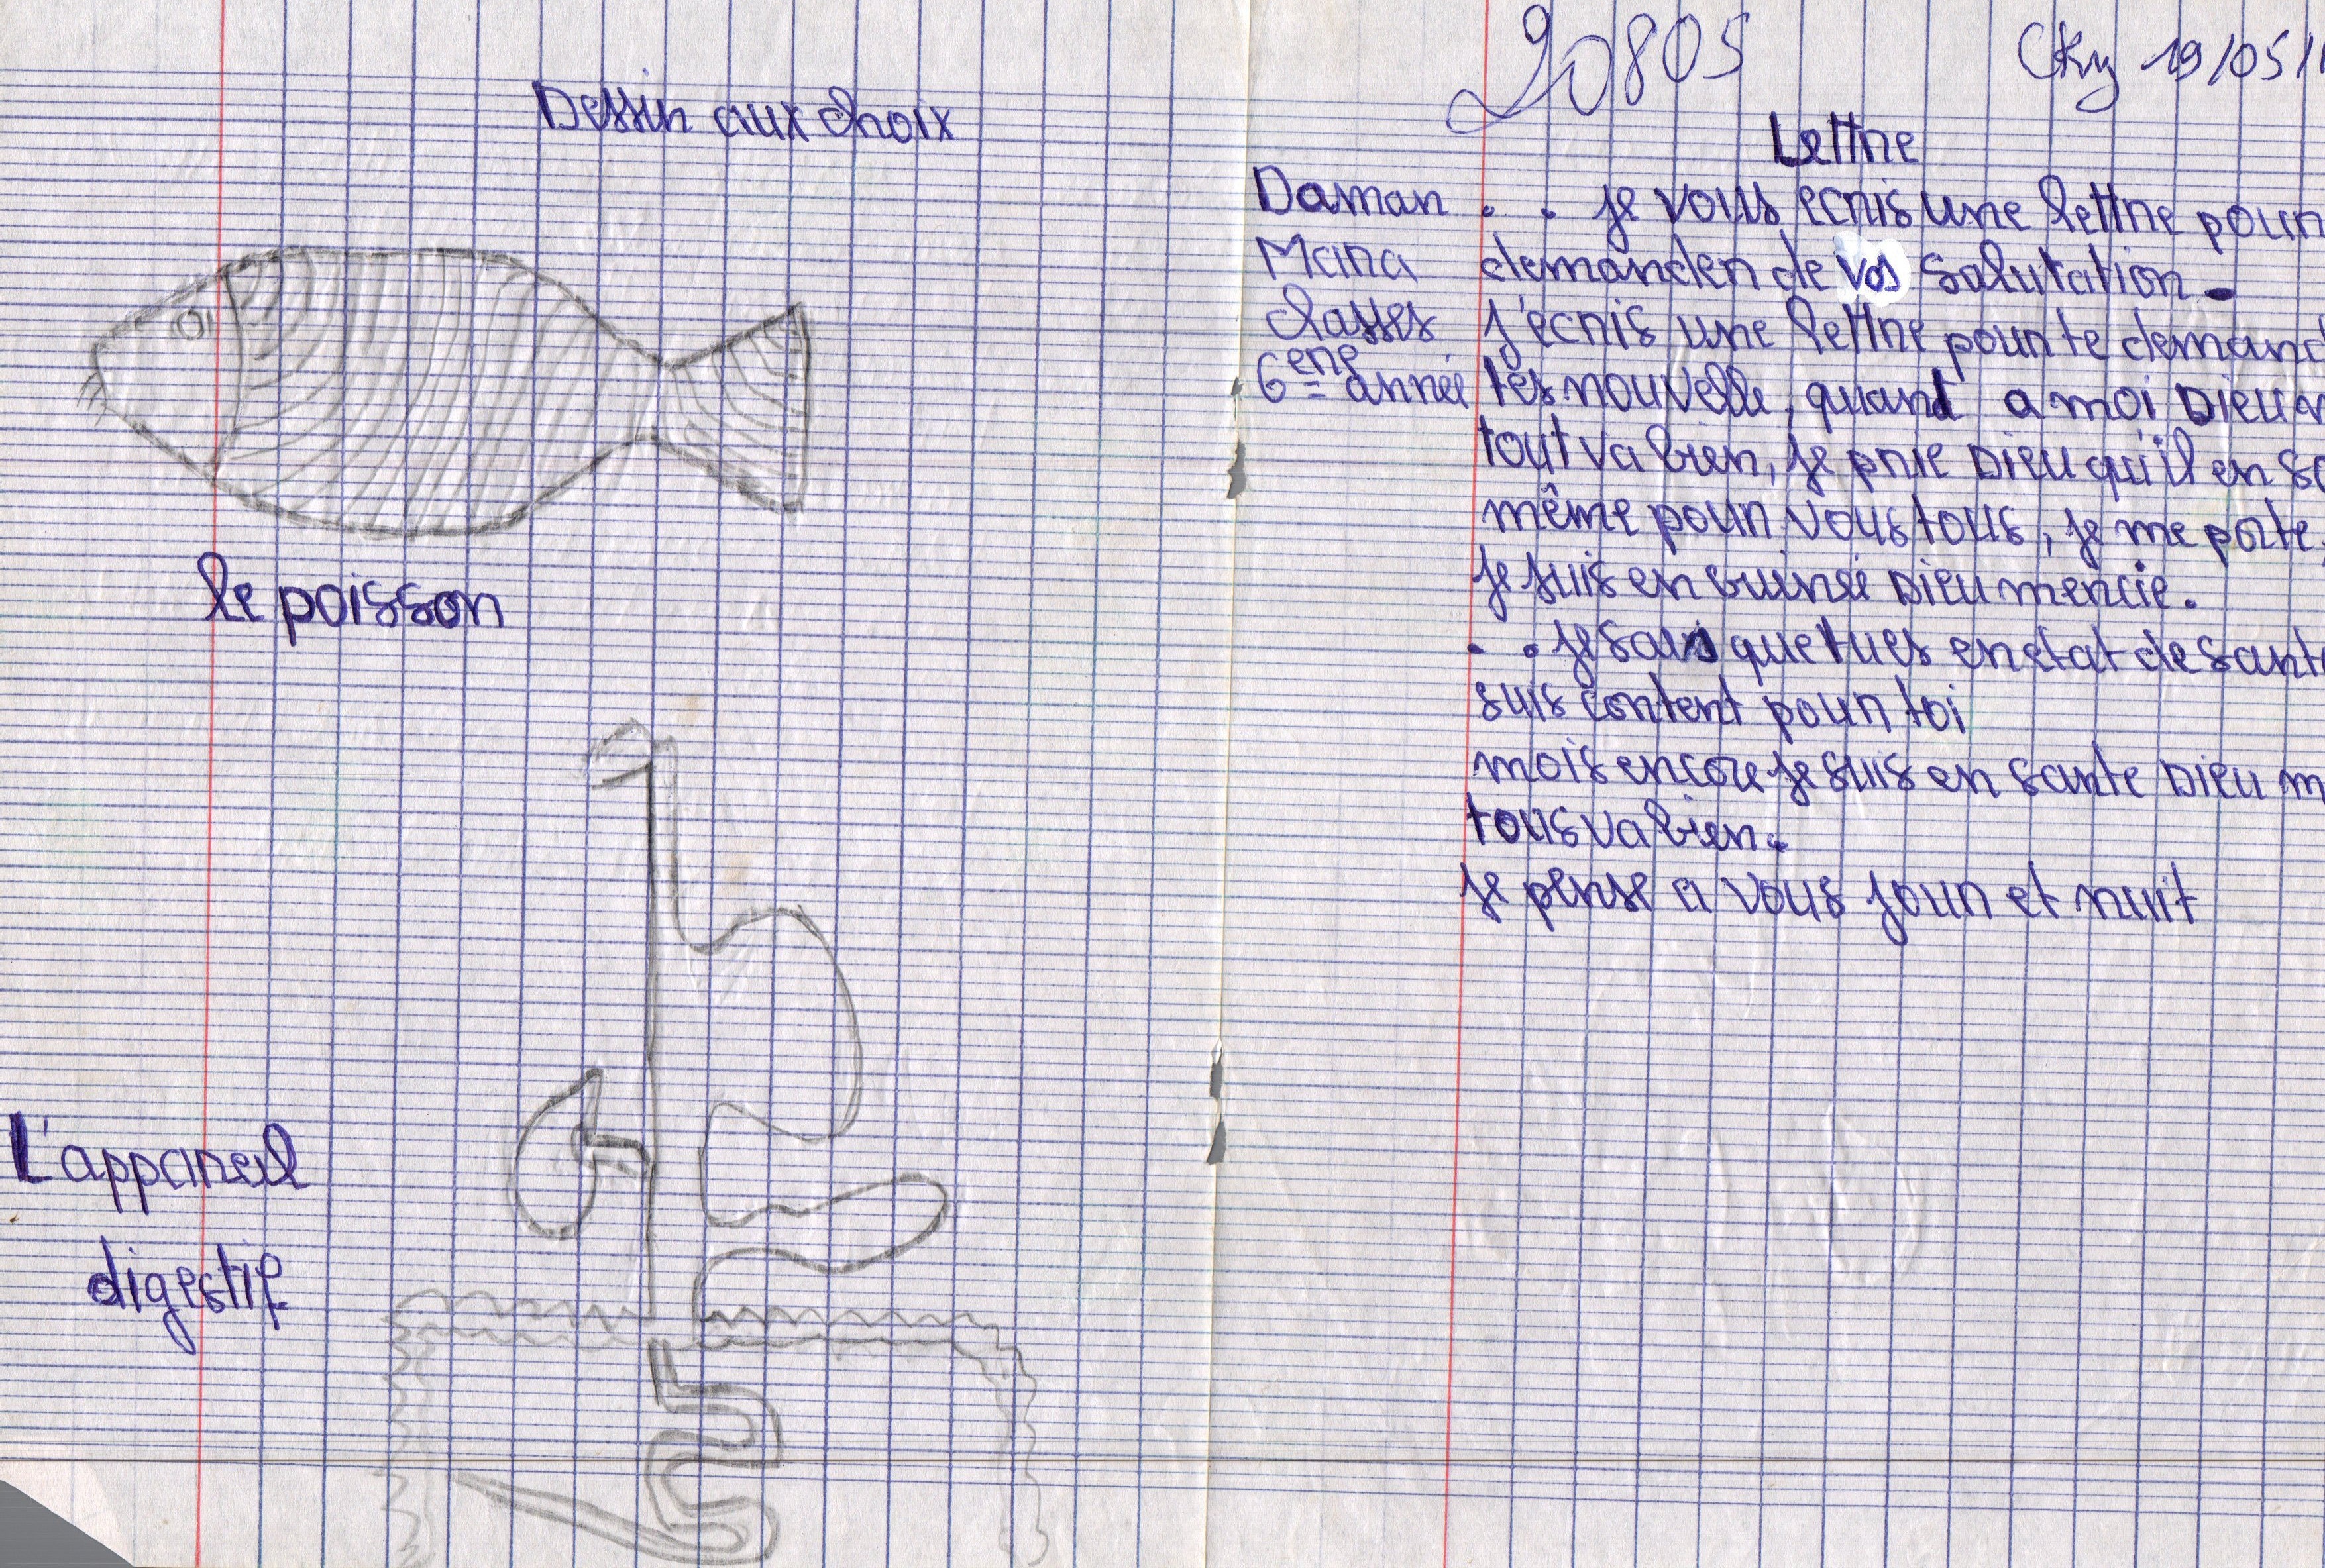 Dessin aux choix
le poisson
L'appareil
digestif
20805
Cky 19/05/1
Lettre
Daman
Mara
classes
6ème année
je vous ecris une lettre pour
demander de vos salutation.
j'ecris une lettre pour te demand
tes nouvelle, quant a moi Dieu m
tout va bien, je prie Dieu qu'il en so
même pour vous tous, je me porte
je suis en guinée Dieu mercie.
je sais que tu es en etat de santé
suis content pour toi
mois encore je suis en sante Dieu m
tous va bien.
je pense a vous jour et nuit